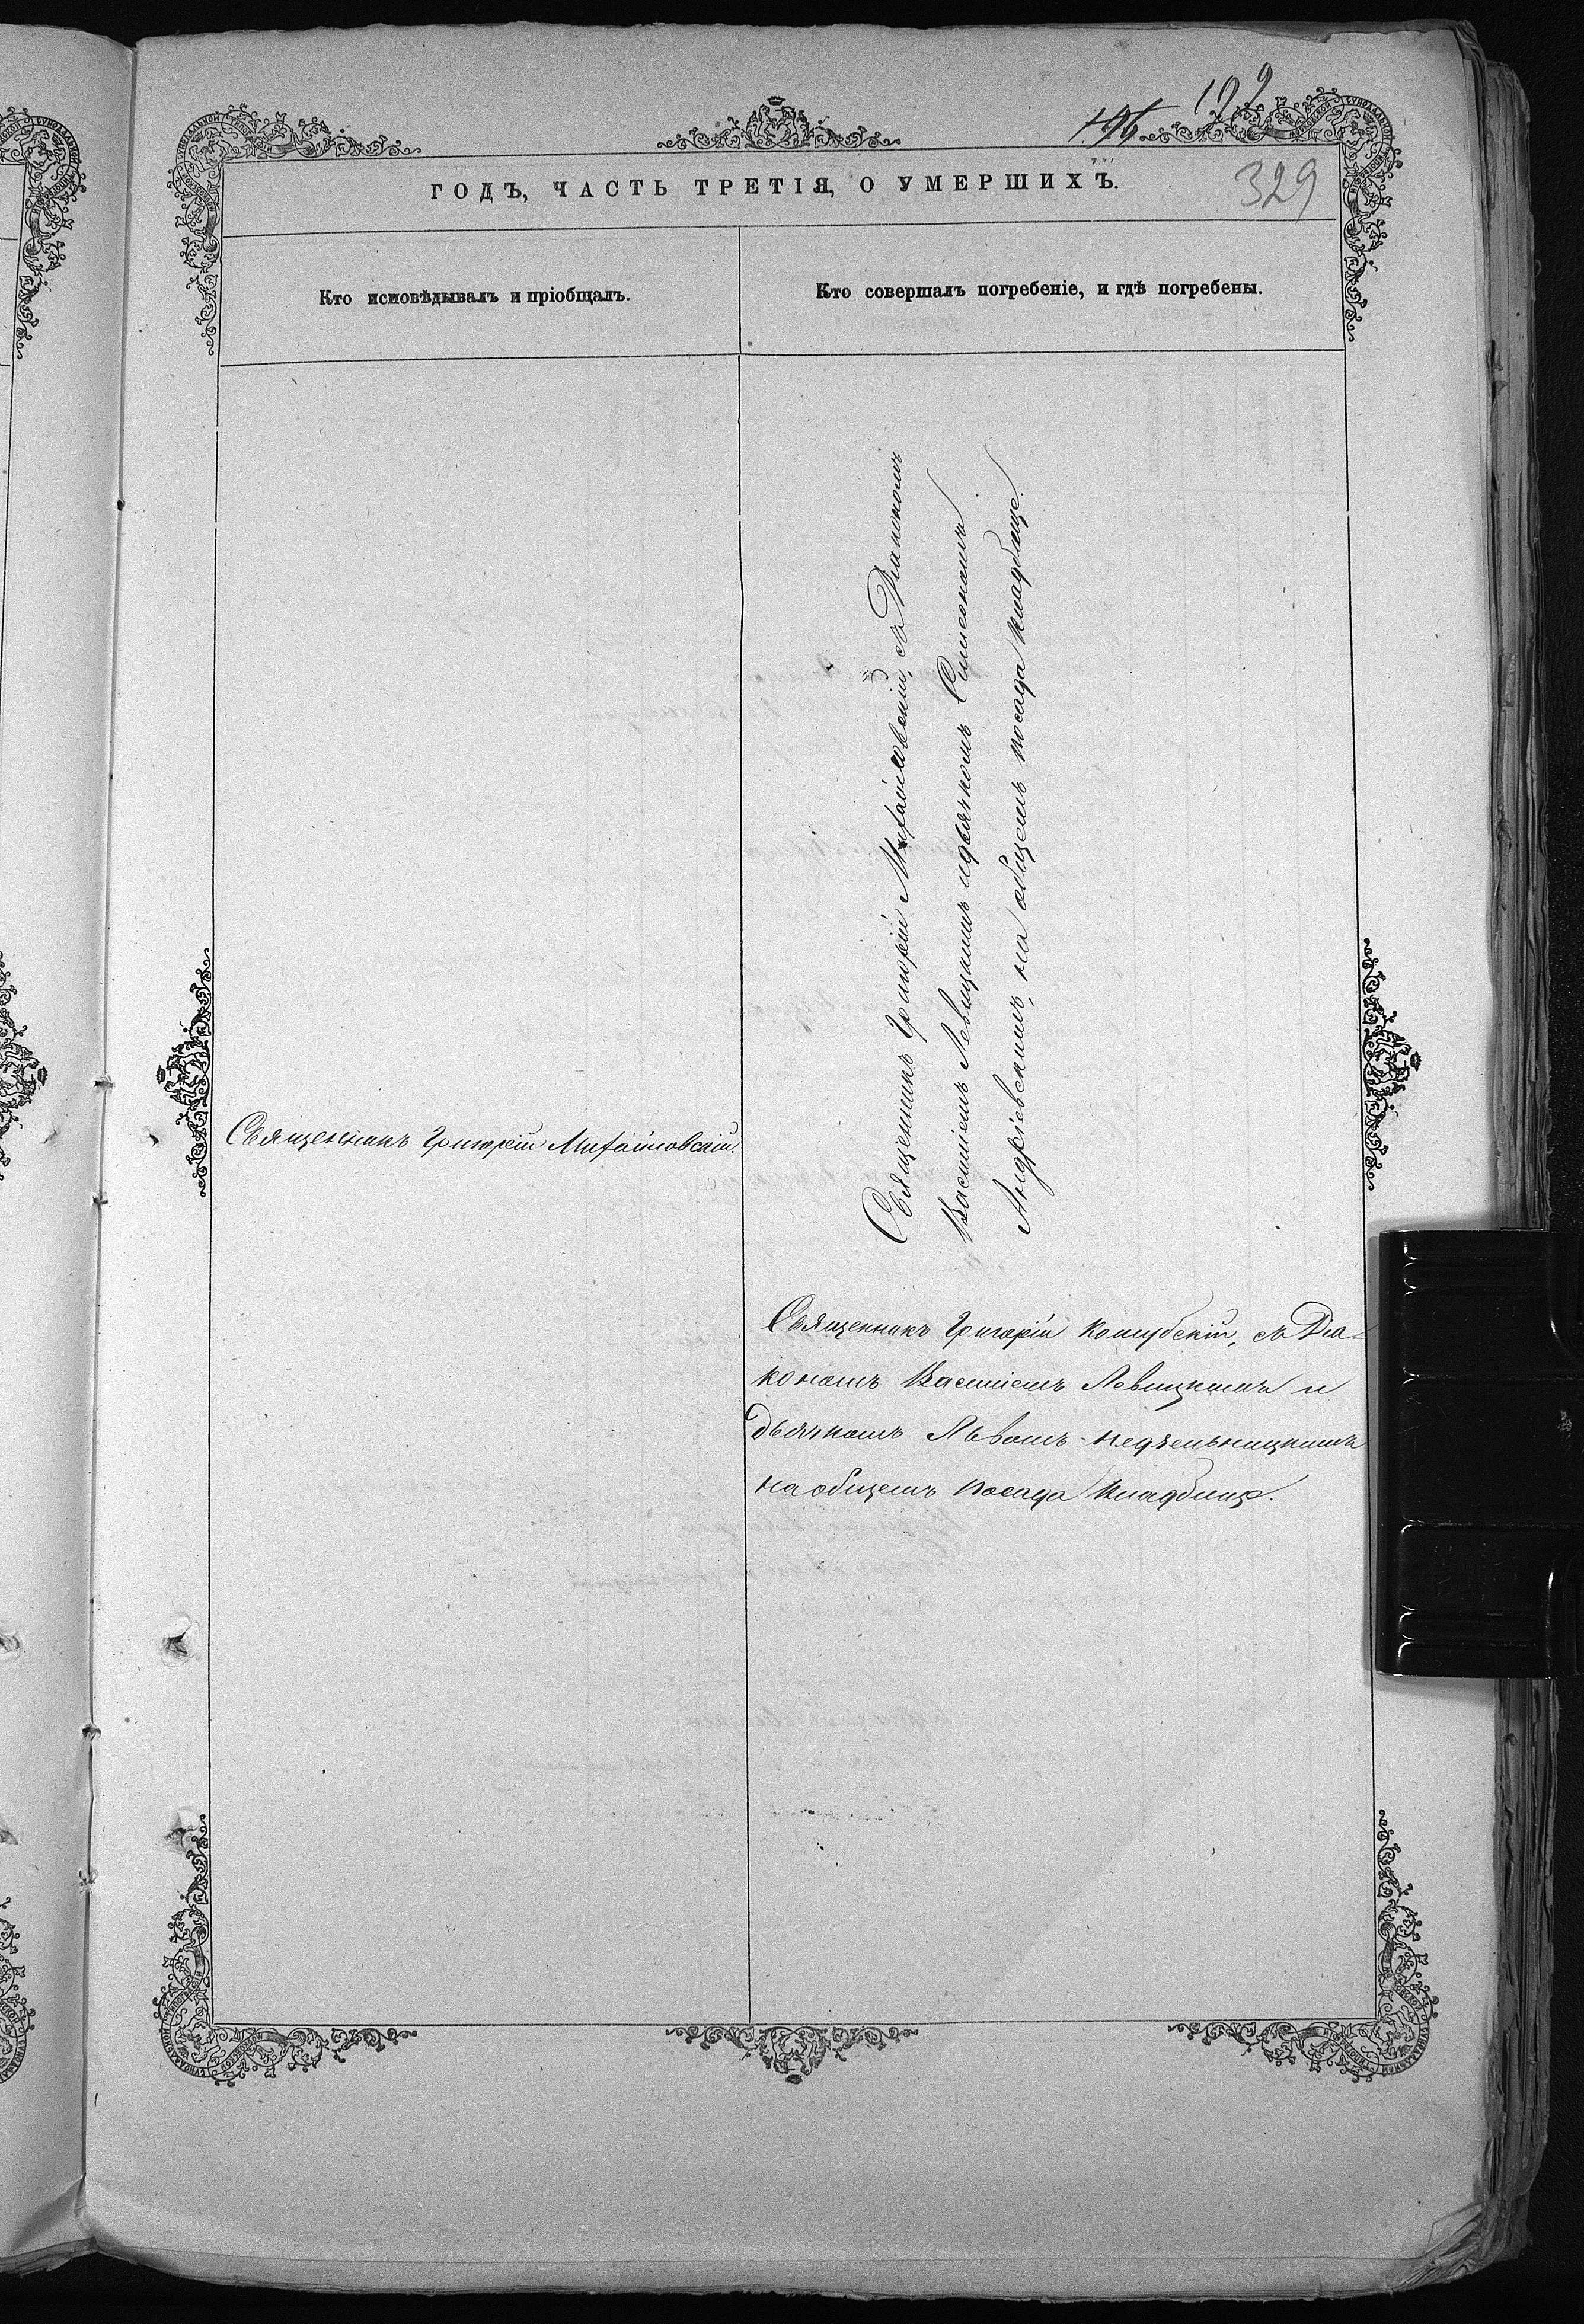 199
196
329
ГОДЪ, ЧАСТЬ ТРЕТІЯ, О УМЕРШИХЪ.
Кто исповѣдывалъ и пріобщалъ.
Кто совершалъ погребеніе, и гдѣ погребены.
Священникъ Григорій Михайловскій, съ Діакономъ
Василіемъ Левицкимъ и дьячкомъ Симеономъ
Андріевскимъ, на общемъ посада кладбище.
Священникъ Григорій Михайловскій.
Священникъ Григорій съ Діа-
кономъ Василіемъ Левицкимъ и
дьячкомъ Львомъ Недзельницкимъ
на общемъ посада кладбище.